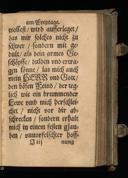 am Freytage.
wollest / wird aufferleget /
das mir solches nicht zu
schwer / sondern mit ge-
dult / als dein armes Ge-
schöpffe / dulden und ertra-
gen könne / las mich auch
mein HERR und Gott /
den bösen Feind / der teg-
lich wie ein brummender
Lewe umb mich herschlei-
chet / nicht vor dir ab-
schrecken / sondern erhalt
mich in einem festen glau-
ben / unauffelschter hoff-
J iij nung